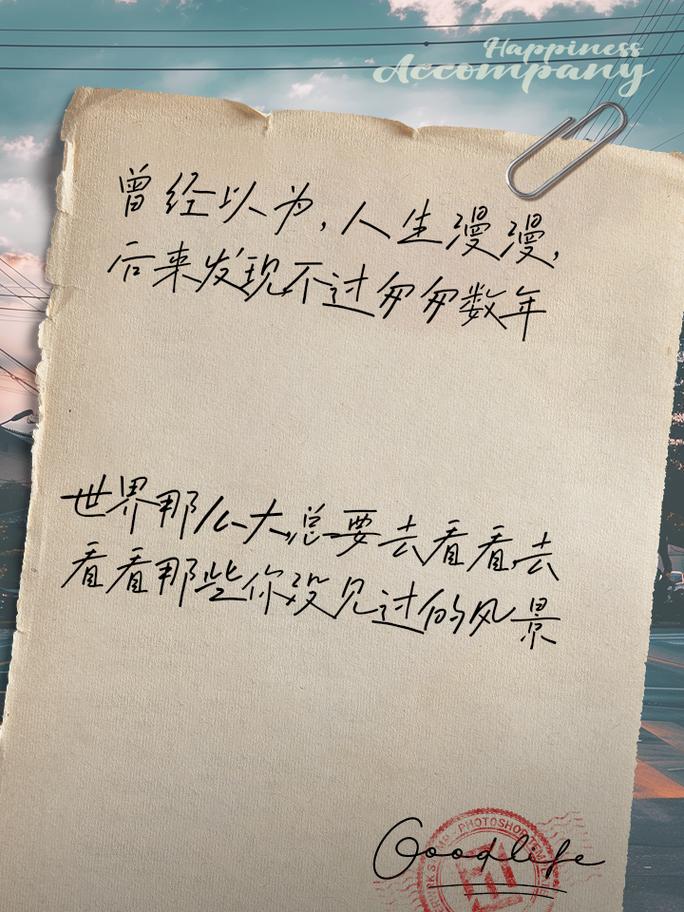 Happiness
Accompany
曾经以为，人生漫漫，
后来发现不过匆匆数年
世界那么大，总要去看看，去
看看那些你没见过的风景
Goodlife
PHOTOSHOP